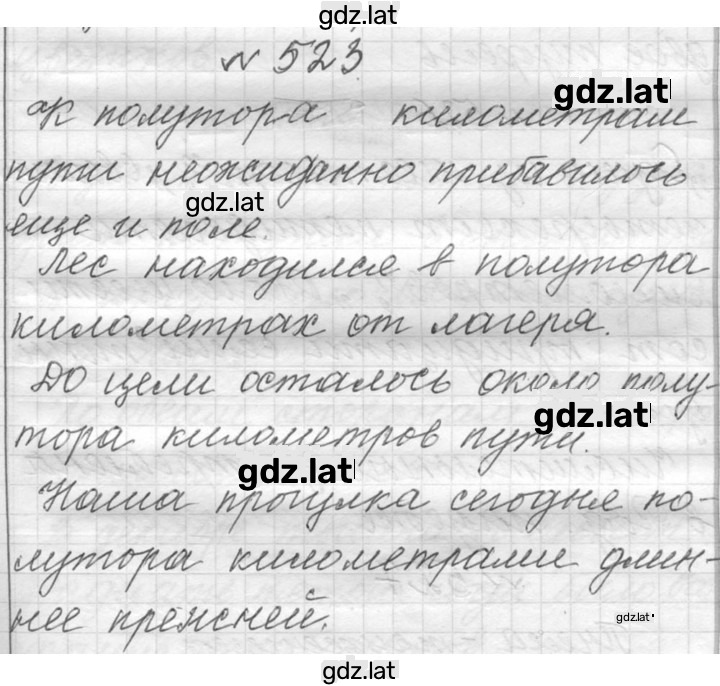 gdz.lat
№ 523
gdz.lat
К полутора километрам
пути неожиданно прибавилось
gdz.lat
еще и поле.
Лес находился в полутора
километрах от лагеря.
До цели осталось около полу-
gdz.lat
тора километров пути.
gdz.lat
Наша прогулка сегодня по-
лутора километрами длин-
нее прежней.
gdz.lat
gdz.lat